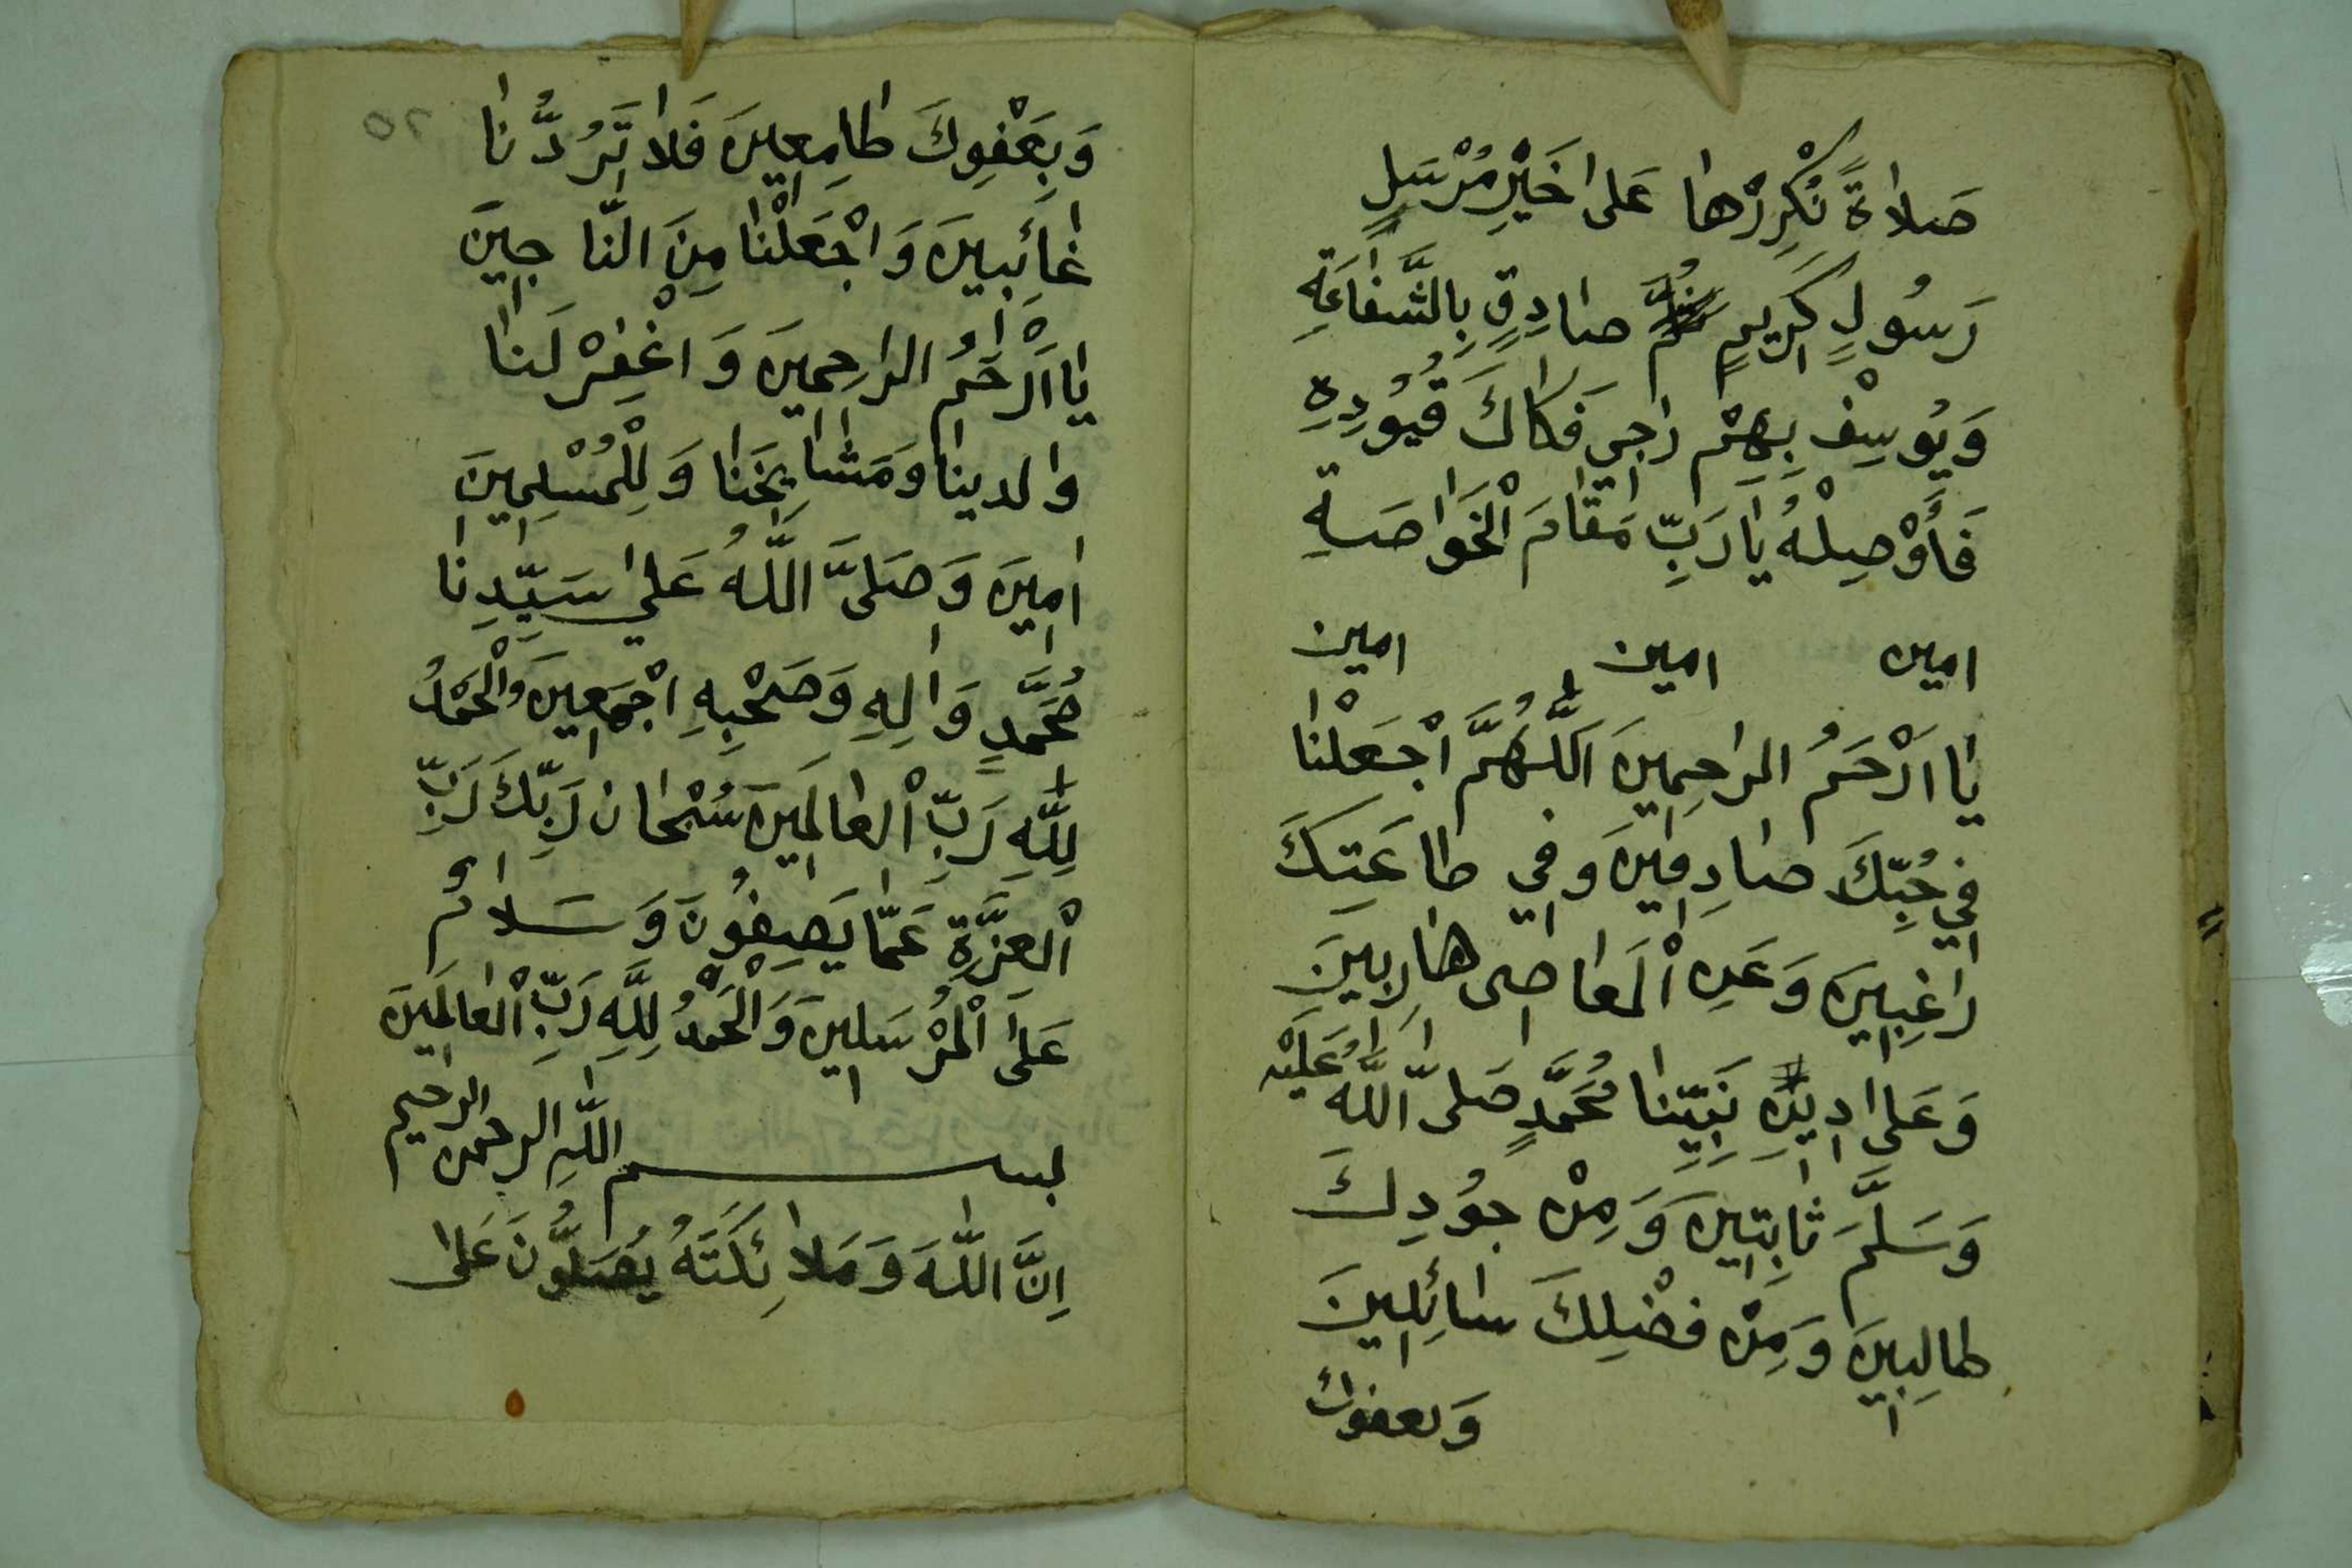 صَلاةً نُكَرِرْهَا عَلَى خَيْرِ مُرْسَلٍ
رَسُولٍ كَرِيمٍ صَادِقٍ بِالشَّفَاعَةِ
وَيُوسِفْ بِهِمْ رَاجِي فَكَاكَ قُيُودِهِ
فَأَوْصِلْهُ يَا رَبِّ مَقَامَ الْخَوَاصَةِ
امين امين امين
يَا اَرْحَمُ الراحِمِينَ اَللَّهُمَّ اجْعَلْنَا
فِي حُبِّكَ صَادِقِينَ وَفِي طَاعَتِكَ
رَاغِبِينَ وَعَنِ الْمَعَاصِى هَارِبِينَ
وَعَلَى دِينِ نَبِيِّنَا مُحَمَّدٍ صَلَّى اللَّهُ عَلَيْهِ
وَسَلَّمَ ثَابِتِينَ وَمِنْ جُودِكَ
طَالِبِينَ وَمِنْ فَضْلِكَ سَائِلِينَ
وَبعفوك
٢٥
وَبِعَفْوِكَ طَامِعِينَ فَلَا تَرُدَّنَا
غَائِبِينَ وَاجْعَلْنَا مِنَ النَّاجِينَ
يَا اَرْحَمُ الراحِمِينَ وَاغْفِرْ لَنَا
والدينا وَمَشَايِخَنَا وَلِلْمُسْلِمِينَ
امِينَ وَصَلَّى اللَّهُ عَلَي سَيِّدِنَا
مُحَمَّدٍ وَالِهِ وَصَحْبِهِ اجْمَعِينَ وَالْحَمْدُ
لِلَّهِ رَبِّ الْعَالَمِينَ سُبْحَانَ رَبِّكَ رَبِّ
الْعِزَّةِ عَمَّا يَصِفُونَ وَسَلَامٌ
عَلَى الْمُرْسَلِينَ وَالْحَمْدُ لِلَّهِ رَبِّ الْعَالَمِينَ
بسم اللَّهِ الرحمن الرحيم
اِنَّ اللَّهَ وَمَلَائِكَتَهُ يُصَلُّونَ عَلَى